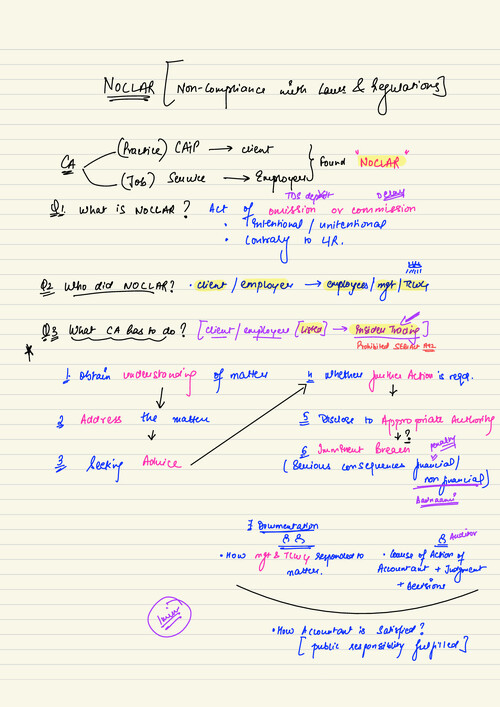 NOCLAR [Non-Compliance with Laws & Regulations]
CA
(Practice) CAIP → client
(Job) Service → Employer
Found "NOCLAR"
TDS deposit
Q1. What is NOCLAR? Act of omission or commission
• Intentional / unitentional
• Contrary to L/R.
Q2 Who did NOCLAR? • client / employer → employees / mgt / TCWG
Q3 What CA has to do? [client / employers [Listed] → Insider Trading]
Prohibited SEBI Act
*
1. Obtain understanding of matter
2 Address the matter
3 Seeking Advice
4 Whether further Action is reqd.
5 Disclose to Appropriate Authority
?
6 Imminent Breach
(Serious consequences financial /
non financial)
penalty
Badnaami
7 Documentation
• How mgt & TCWG responded to
matter.
Auditor
• Course of Action of
Accountant + Judgment
+ Decisions
• How Accountant is Satisfied?
[public responsibility fulfilled]